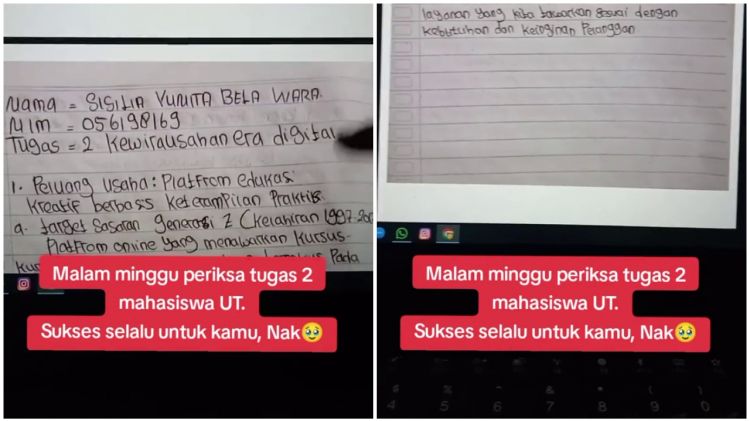 Nama = SISILIA YUNITA BELA WARA
NIM = 056198169
Tugas = 2 Kewirausahan era digital
1. Peluang usaha : Platfrom edukasi
kreatif berbasis keterampilan Praktis
a. target Sasaran generasi Z (Kelahiran 1997-20
Platfrom online yang menawarkan kursus-
kur
Pada
Malam minggu periksa tugas 2
mahasiswa UT.
Sukses selalu untuk kamu, Nak🥹
layanan yang kita tawarkan sesuai dengan
kebutuhan dan keinginan Pelanggan
Malam minggu periksa tugas 2
mahasiswa UT.
Sukses selalu untuk kamu, Nak🥹
$ % & * ( )
4 5 6 7 8 9 0